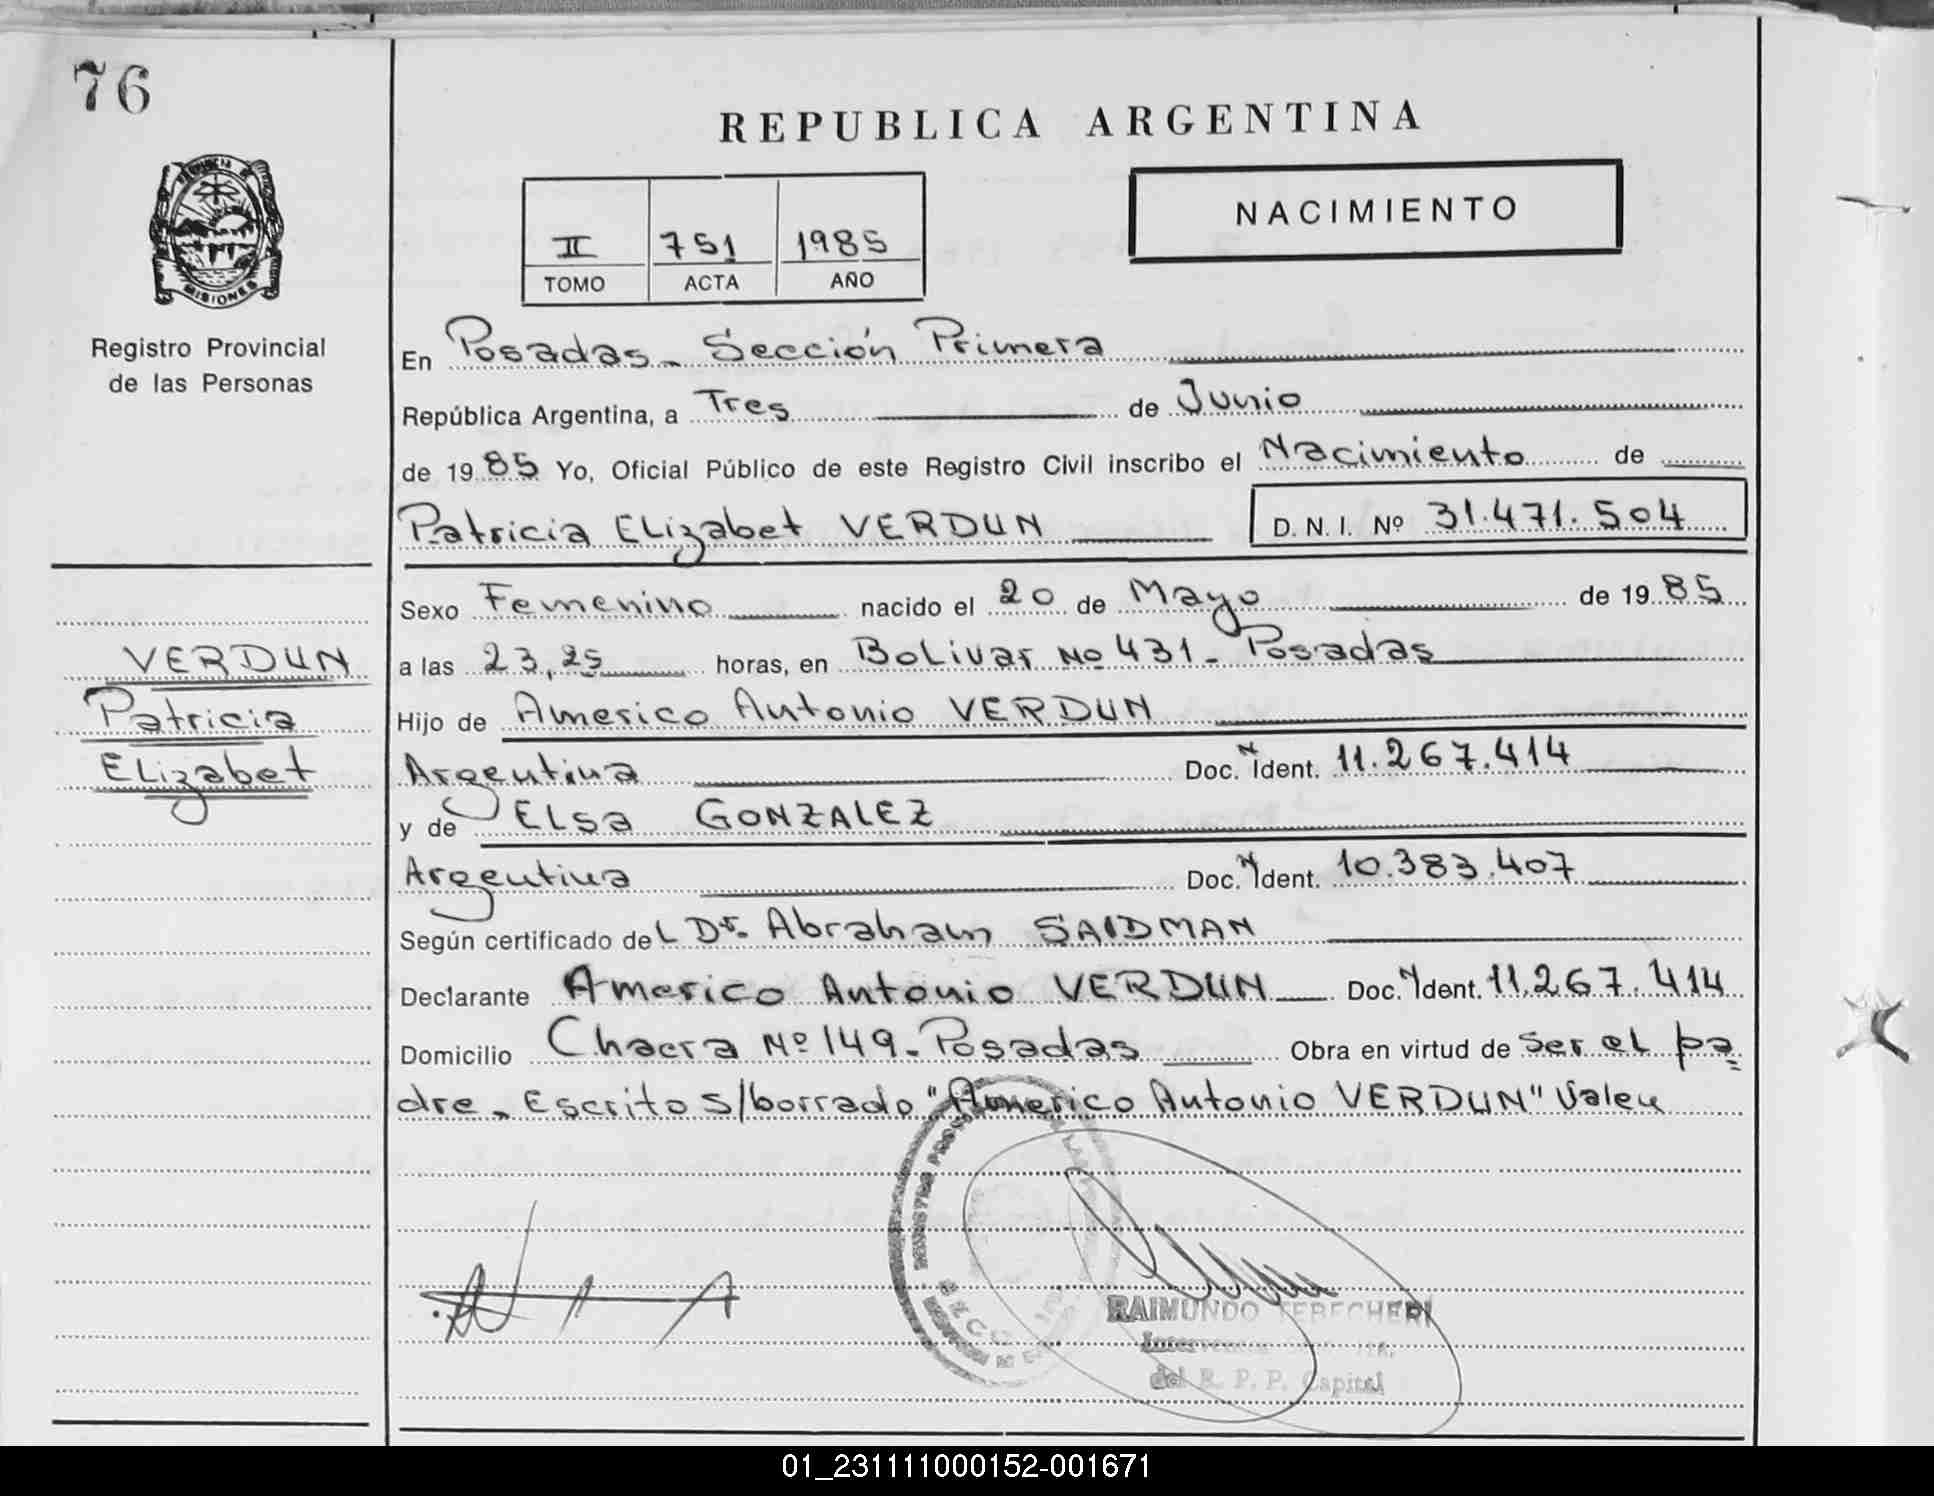 76
REPUBLICA ARGENTINA
NACIMIENTO
II 751 1985
TOMO ACTA AÑO
MISIONES
Registro Provincial
de las Personas
En Posadas - Sección Primera
República Argentina, a Tres de Junio
de 1985 Yo, Oficial Público de este Registro Civil inscribo el Nacimiento de
Patricia Elizabet VERDUN D. N. I. Nº 31.471.504
Sexo Femenino nacido el 20 de Mayo de 1985
a las 23,25 horas, en Bolivar Nº 431 - Posadas
Hijo de Americo Antonio VERDUN
Argentina Doc. N Ident. 11.267.414
y de Elsa GONZALEZ
Argentina Doc. N Ident. 10.383.407
Según certificado del Dr. Abraham SAIDMAN
Declarante Americo Antonio VERDUN Doc. N Ident. 11.267.414
Domicilio Chacra Nº 149 - Posadas Obra en virtud de ser el pa=
dre - Escrito s/borrado "Americo Antonio VERDUN" Valen
VERDUN
Patricia
Elizabet
RAIMUNDO
del R. P. P. Capital
01_231111000152-001671